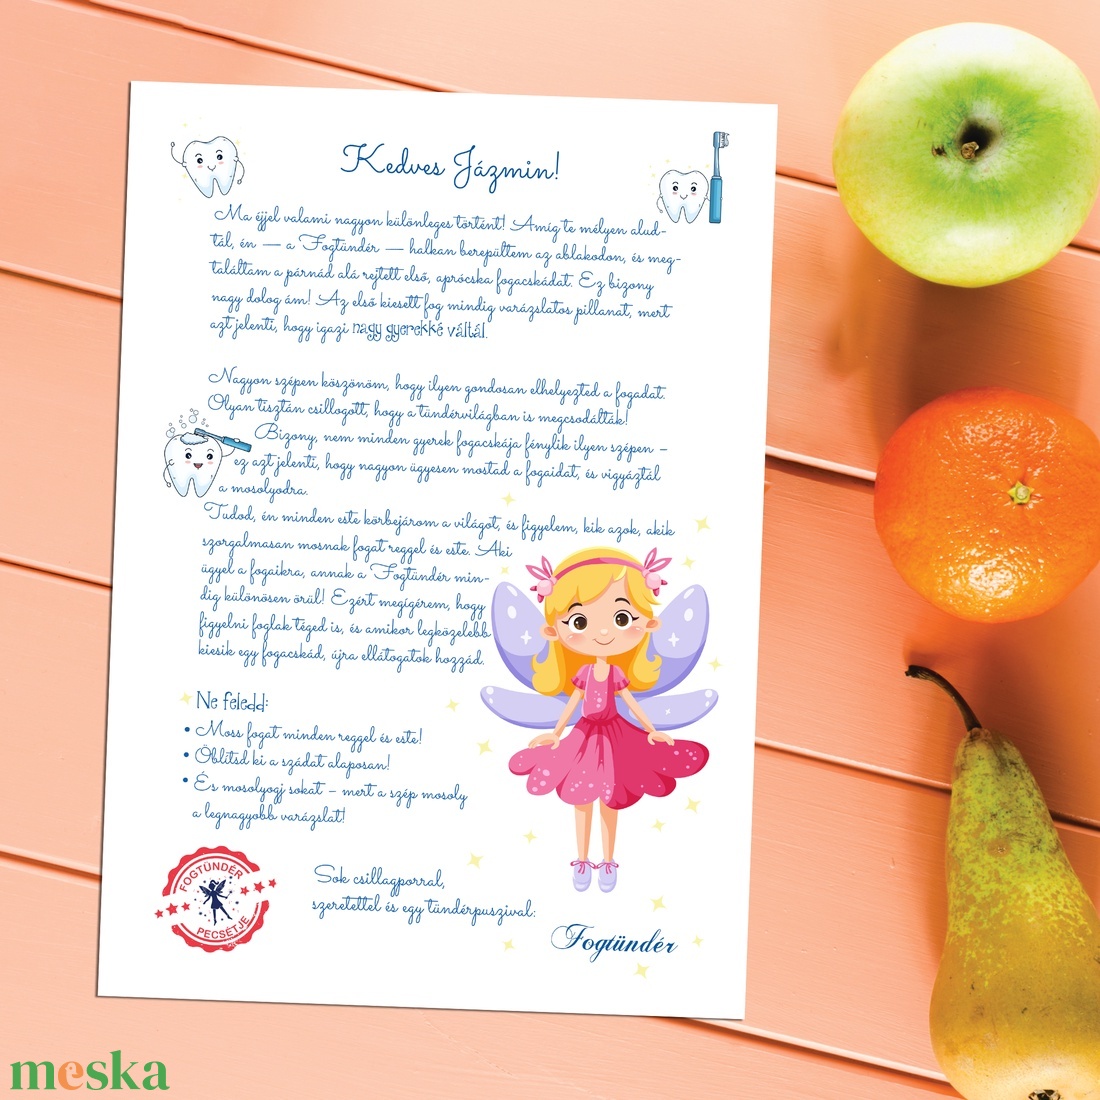 Kedves Jázmin!
Ma éjjel valami nagyon különleges történt! Amíg te mélyen alud-
tál, én — a Fogtündér — halkan berepültem az ablakodon, és meg-
találtam a párnád alá rejtett első, aprócska fogacskádat. Ez bizony
nagy dolog ám! Az első kiesett fog mindig varázslatos pillanat, mert
azt jelenti, hogy igazi nagy gyerekké váltál.
Nagyon szépen köszönöm, hogy ilyen gondosan elhelyezted a fogadat.
Olyan tisztán csillogott, hogy a tündérvilágban is megcsodálták!
Bizony, nem minden gyerek fogacskája fénylik ilyen szépen –
ez azt jelenti, hogy nagyon ügyesen mostad a fogaidat, és vigyáztál
a mosolyodra.
Tudod, én minden este körbejárom a világot, és figyelem, kik azok, akik
szorgalmasan mosnak fogat reggel és este. Aki
ügyel a fogaikra, annak a Fogtündér min-
dig különösen örül! Ezért megígérem, hogy
figyelni foglak téged is, és amikor legközelebb
kiesik egy fogacskád, újra ellátogatok hozzád.
Ne feledd:
• Moss fogat minden reggel és este!
• Öblítsd ki a szádat alaposan!
• És mosolyogj sokat – mert a szép mosoly
a legnagyobb varázslat!
FOGTÜNDÉR
PECSÉTJE
Sok csillagporral,
szeretettel és egy tündérpuszival:
Fogtündér
meska